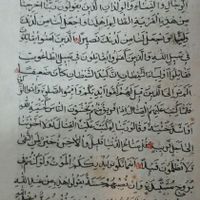 الرِّجَالِ وَالنِّسَاءِ وَالْوِلْدَانِ الَّذِينَ يَقُولُونَ رَبَّنَا أَخْرِجْنَا
مِنْ هَذِهِ الْقَرْيَةِ الظَّالِمِ أَهْلُهَا وَاجْعَلْ لَنَا مِنْ لَدُنْكَ
وَلِيًّا وَاجْعَلْ لَنَا مِنْ لَدُنْكَ نَصِيرًا الَّذِينَ آمَنُوا يُقَاتِلُونَ
فِي سَبِيلِ اللَّهِ وَالَّذِينَ كَفَرُوا يُقَاتِلُونَ فِي سَبِيلِ الطَّاغُوتِ
فَقَاتِلُوا أَوْلِيَاءَ الشَّيْطَانِ إِنَّ كَيْدَ الشَّيْطَانِ كَانَ ضَعِيفًا
فَلَمَّا كُتِبَ عَلَيْهِمُ الْقِتَالُ إِذَا فَرِيقٌ مِنْهُمْ يَخْشَوْنَ النَّاسَ كَخَشْيَةِ اللَّهِ
أَوْ أَشَدَّ خَشْيَةً وَقَالُوا رَبَّنَا لِمَ كَتَبْتَ عَلَيْنَا الْقِتَالَ لَوْلَا أَخَّرْتَنَا
إِلَى أَجَلٍ قَرِيبٍ قُلْ مَتَاعُ الدُّنْيَا قَلِيلٌ وَالْآخِرَةُ خَيْرٌ لِمَنِ اتَّقَى
وَلَا تُظْلَمُونَ فَتِيلًا أَيْنَمَا تَكُونُوا يُدْرِكْكُمُ الْمَوْتُ وَلَوْ كُنْتُمْ فِي
بُرُوجٍ مُشَيَّدَةٍ وَإِنْ تُصِبْهُمْ حَسَنَةٌ يَقُولُوا هَذِهِ مِنْ عِنْدِ اللَّهِ